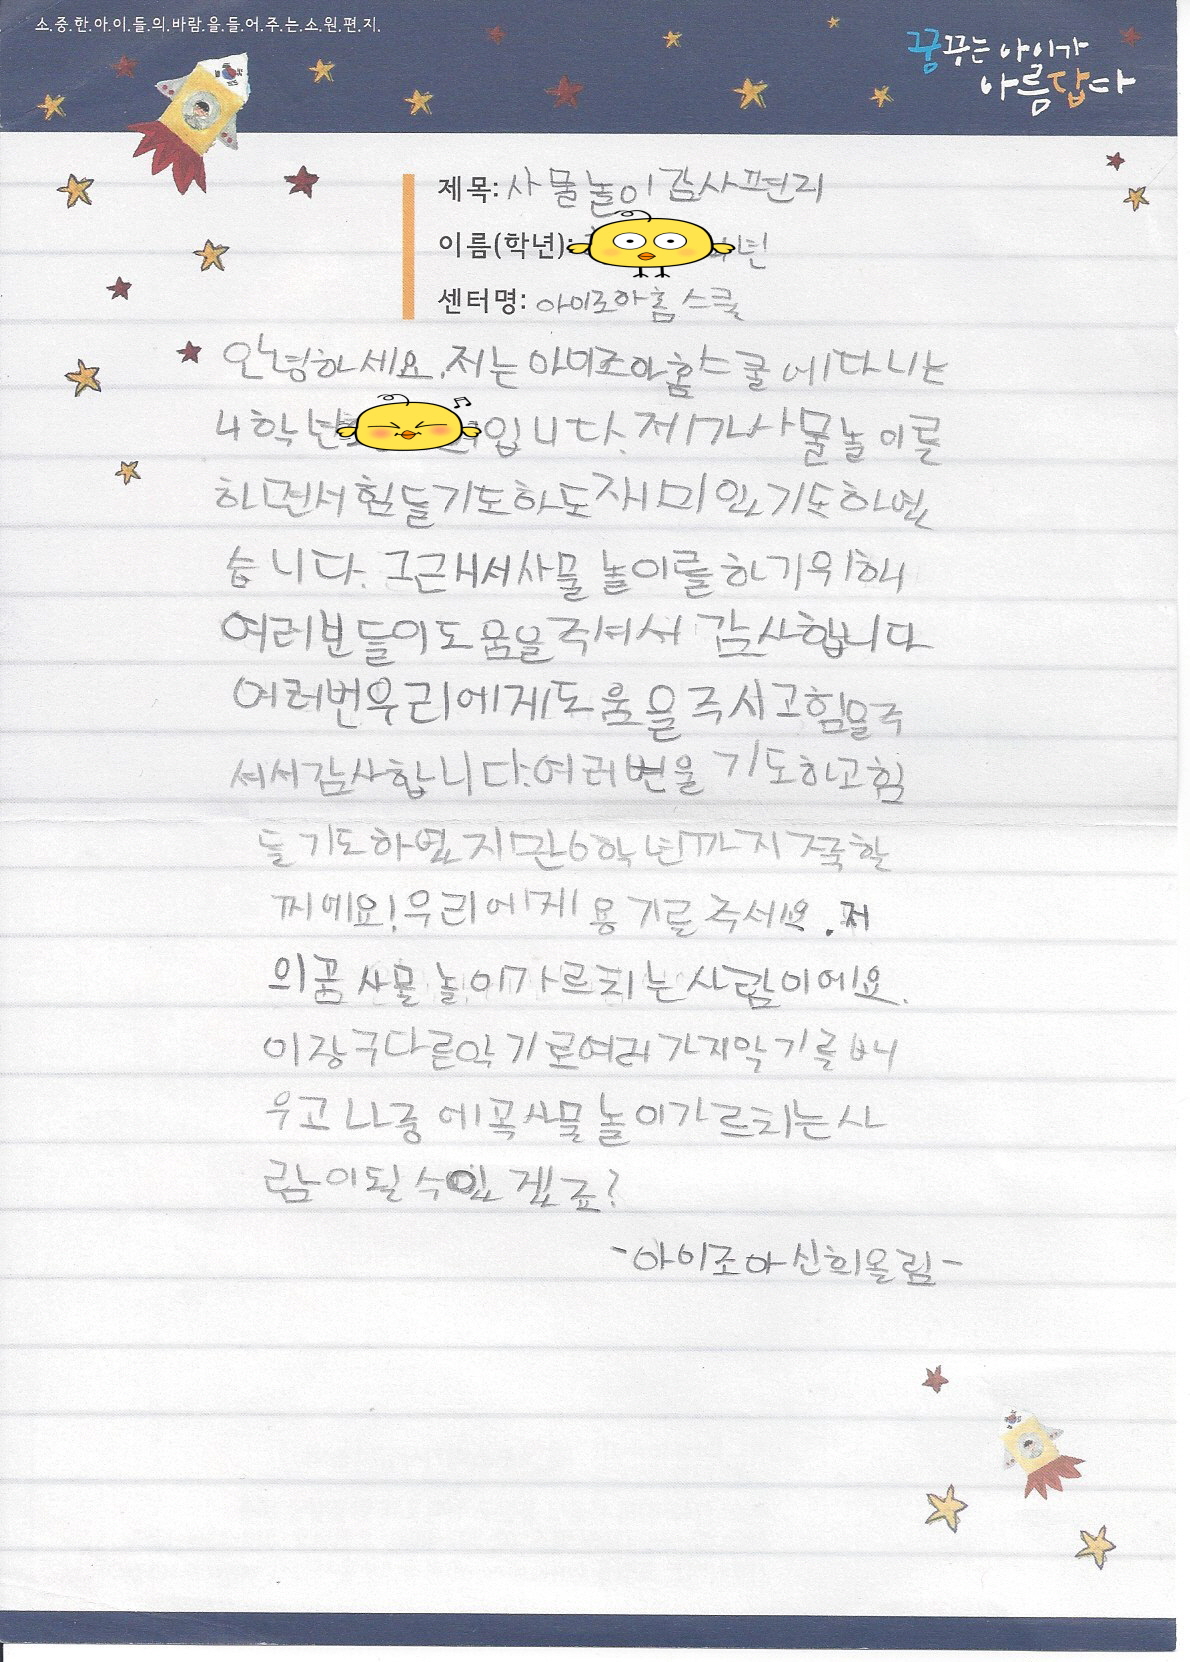 소.중.한.아.이.들.의.바.람.을.들.어.주.는.소.원.편.지.
꿈꾸는 아이가
아름답다
제목: 사물놀이감사편리
이름(학년): 4년
센터명: 아이조아홈스쿨
안녕하세요. 저는 아이조아홈스쿨에다니는
4학년 입니다. 제가사물놀이를
하면서 힘들기도하도재미있기도하였
습니다. 그근대서사물놀이를하기위해
여러분들이도움을주셔서 감사합니다
여러번우리에게도움을주시고힘을주
셔서감사합니다.여러번울기도하고힘
들기도하였지만6학년까지쭉할
꺼에요!우리에게용기를주세요.저
의꿈사물놀이가르치는사람이에요.
이장구다른악기로여러가지악기를배
우고나중에꼭사물놀이가르치는사
람이될수있겠죠?
-아이조아신희올림-